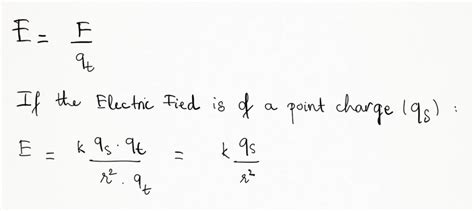 E = F / qt
If the Electric Fied is of a point charge (qs) :
E = k qs . qt / r² . qt = k qs / r²